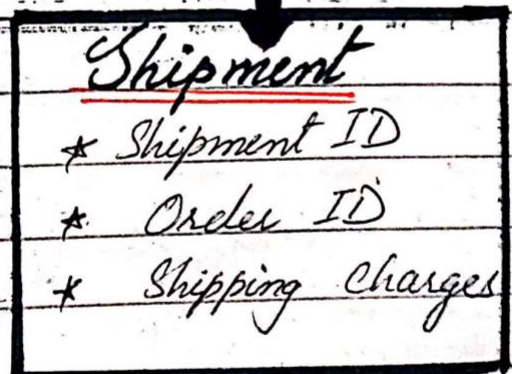 Shipment
* Shipment ID
* Order ID
* Shipping Charges